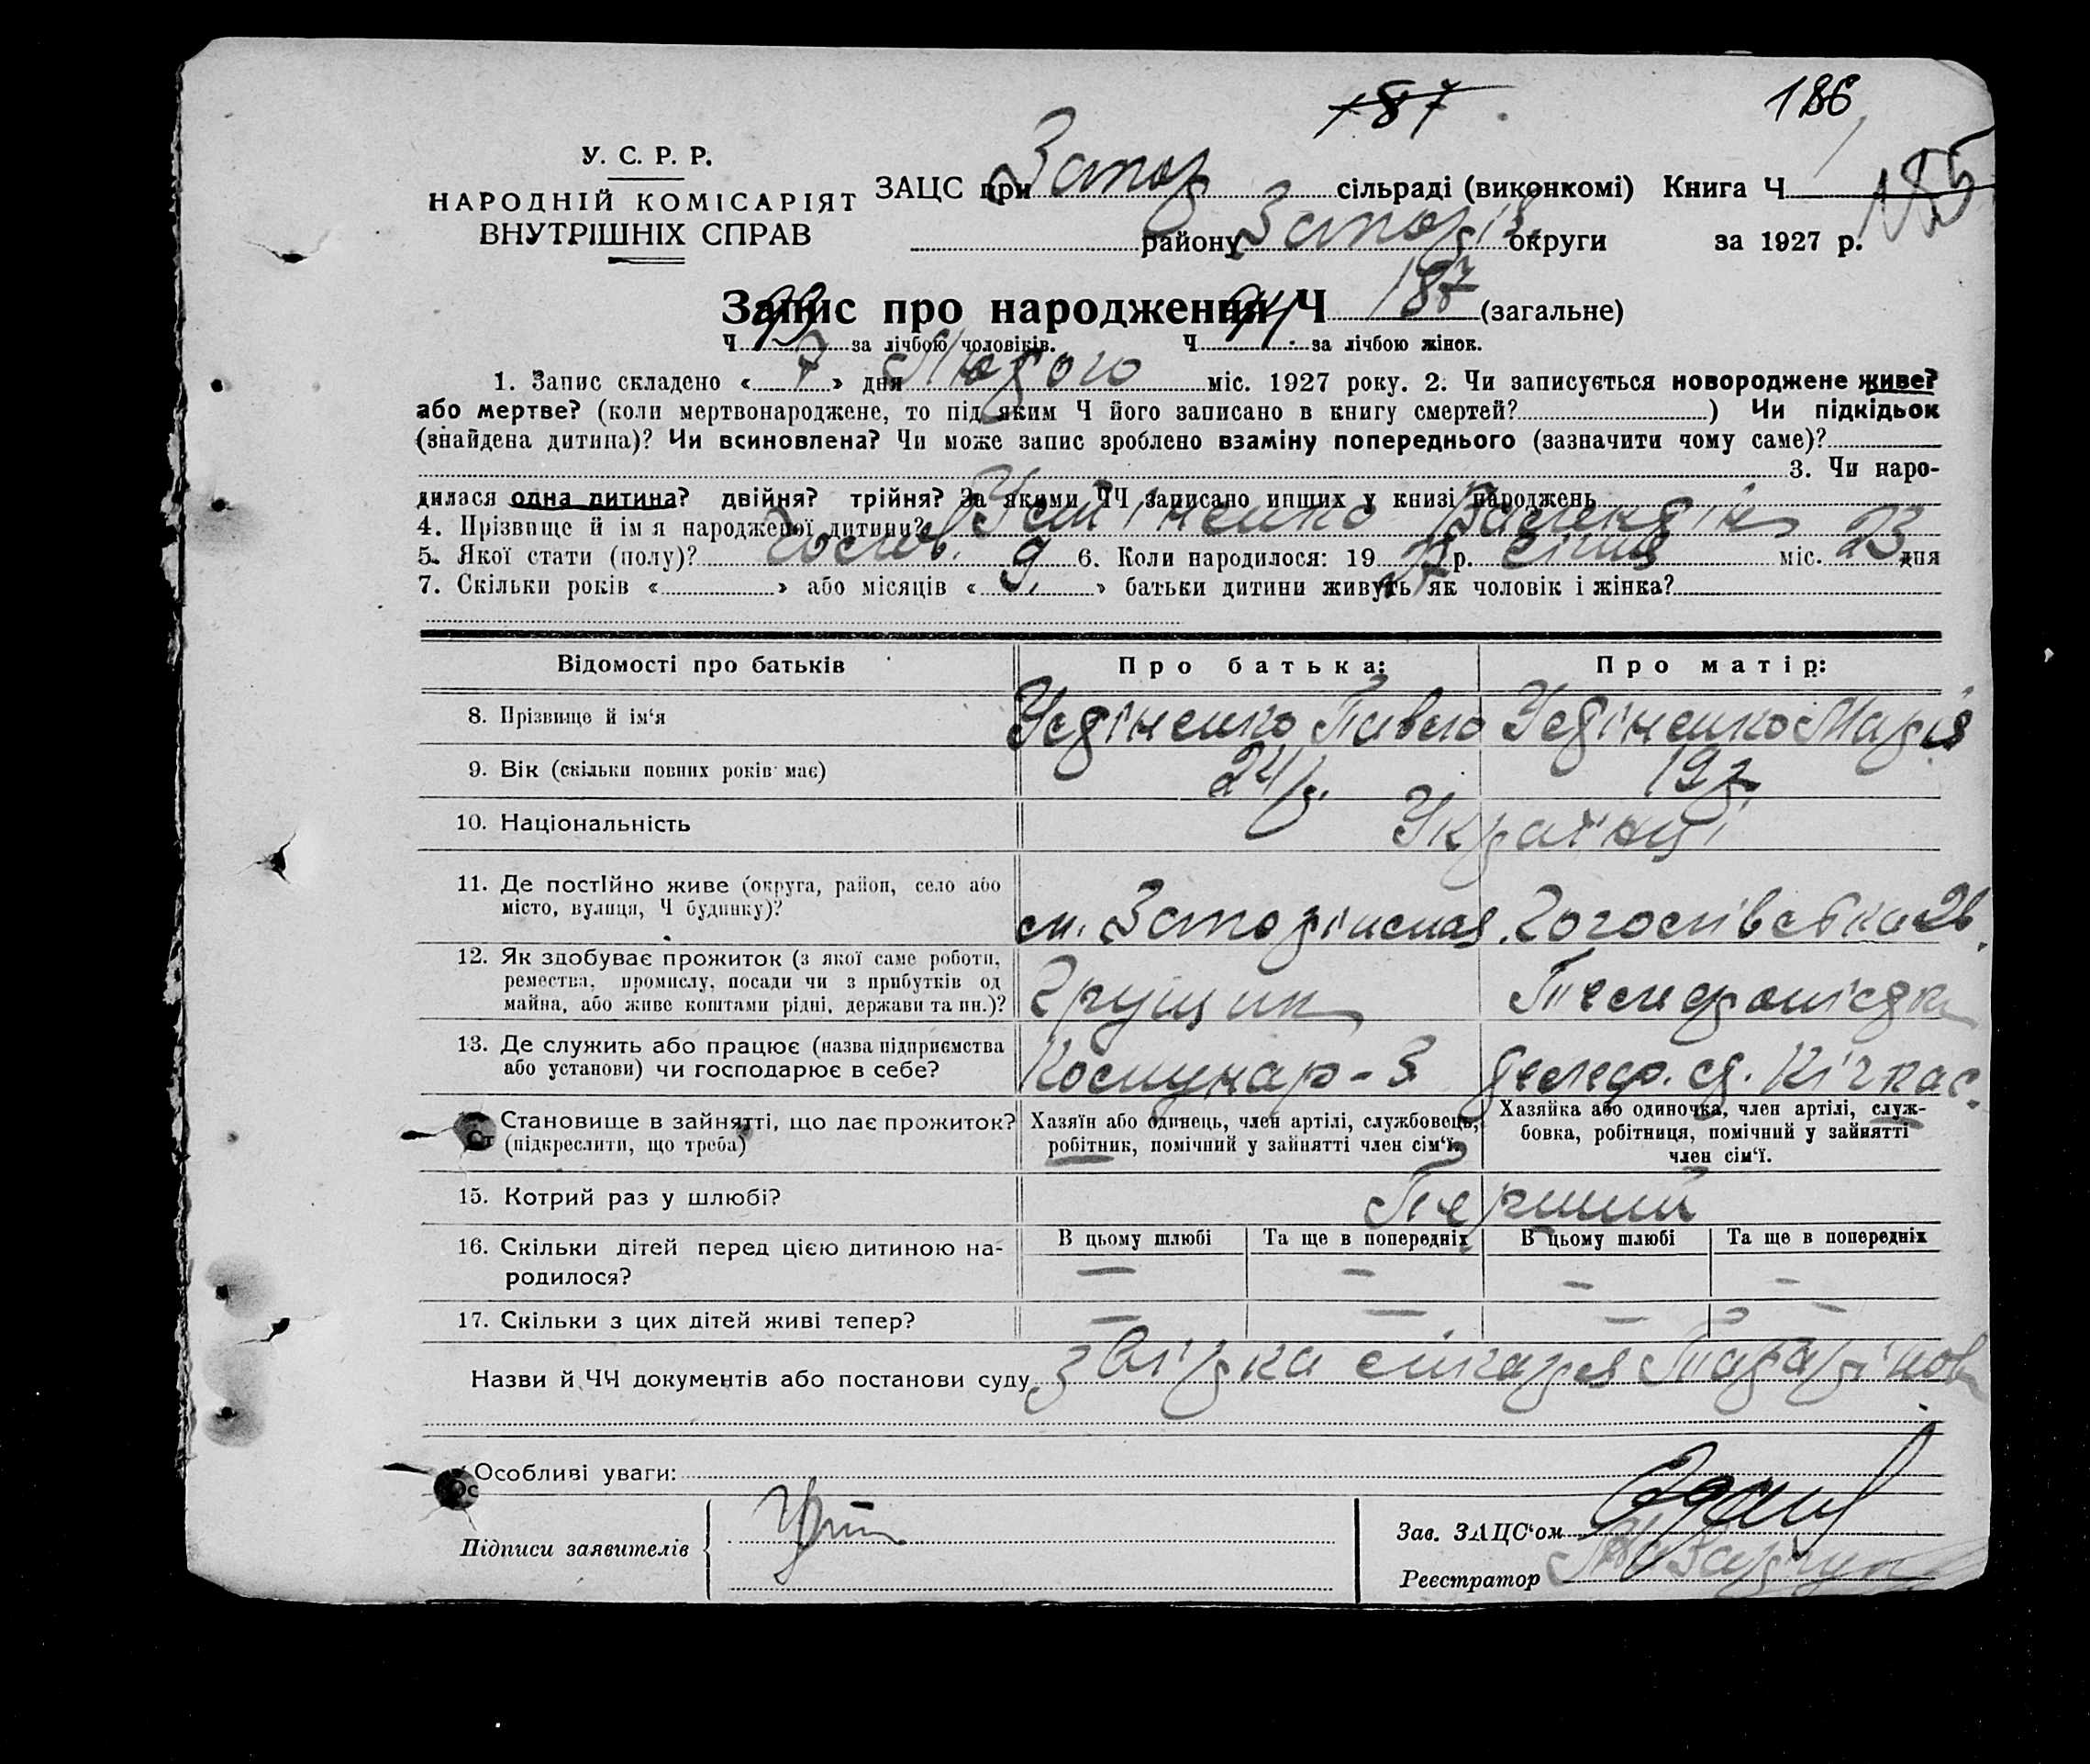 187
186
У. С. Р. Р.
НАРОДНІЙ КОМІСАРІЯТ
ВНУТРІШНІХ СПРАВ
ЗАЦС при Запор сільраді (виконкомі) Книга Ч 185
району Запоріз округи за 1927 р.
Запис про народження Ч 187 (загальне)
Ч 93 за лічбою чоловіків. Ч 94 за лічбою жінок.
1. Запис складено « 7 » дня Лютого міс. 1927 року. 2. Чи записується новороджене живе?
або мертве? (коли мертвонароджене, то під яким Ч його записано в книгу смертей?) Чи підкідьок
(знайдена дитина)? Чи всиновлена? Чи може запис зроблено взаміну попереднього (зазначити чому саме)?
3. Чи наро-
дилася одна дитина? двійня? трійня? За якими ЧЧ записано инших у книзі народжень
4. Прізвище й ім я народженої дитини? Валендін
5. Якої стати (полу)? Чолов. 6. Коли народилося: 19 27 р. січня міс. 23 дня
7. Скільки років « » або місяців « 9 » батьки дитини живуть як чоловік і жінка?
Відомості про батьків Про батька: Про матір:
8. Прізвище й ім‘я Уєдіненко Павло Уєдіненко Марія
9. Вік (скільки повних років має) 24 р. 19 р.
10. Національність Українці
11. Де постійно живе (округа, район, село або
місто, вулиця, Ч будинку)? м. Запоріжжя, Гоголівська 26.
12. Як здобуває прожиток (з якої саме роботи,
ремества, промислу, посади чи з прибутків од
майна, або живе коштами рідні, держави та ин.)? Грущик Телефоністка
13. Де служить або працює (назва підприємства
або установи) чи господарює в себе? Комунар - 3 телеф. ст. Кічкас.
Становище в зайнятті, що дає прожиток?
(підкреслити, що треба)
Хазяїн або одинець, член артілі, службовець,
робітник, помічний у зайнятті член сім‘ї.
Хазяйка або одиночка, член артілі, служ-
бовка, робітниця, помічний у зайнятті
член сім‘ї.
15. Котрий раз у шлюбі? Перший
16. Скільки дітей перед цією дитиною на-
родилося?
В цьому шлюбі Та ще в попередніх В цьому шлюбі Та ще в попередніх
— — — —
17. Скільки з цих дітей живі тепер? — — — —
Назви й ЧЧ документів або постанови суду звідка лікаря
Особливі уваги:
Підписи заявителів
Зав. ЗАЦС‘ом
Реєстратор